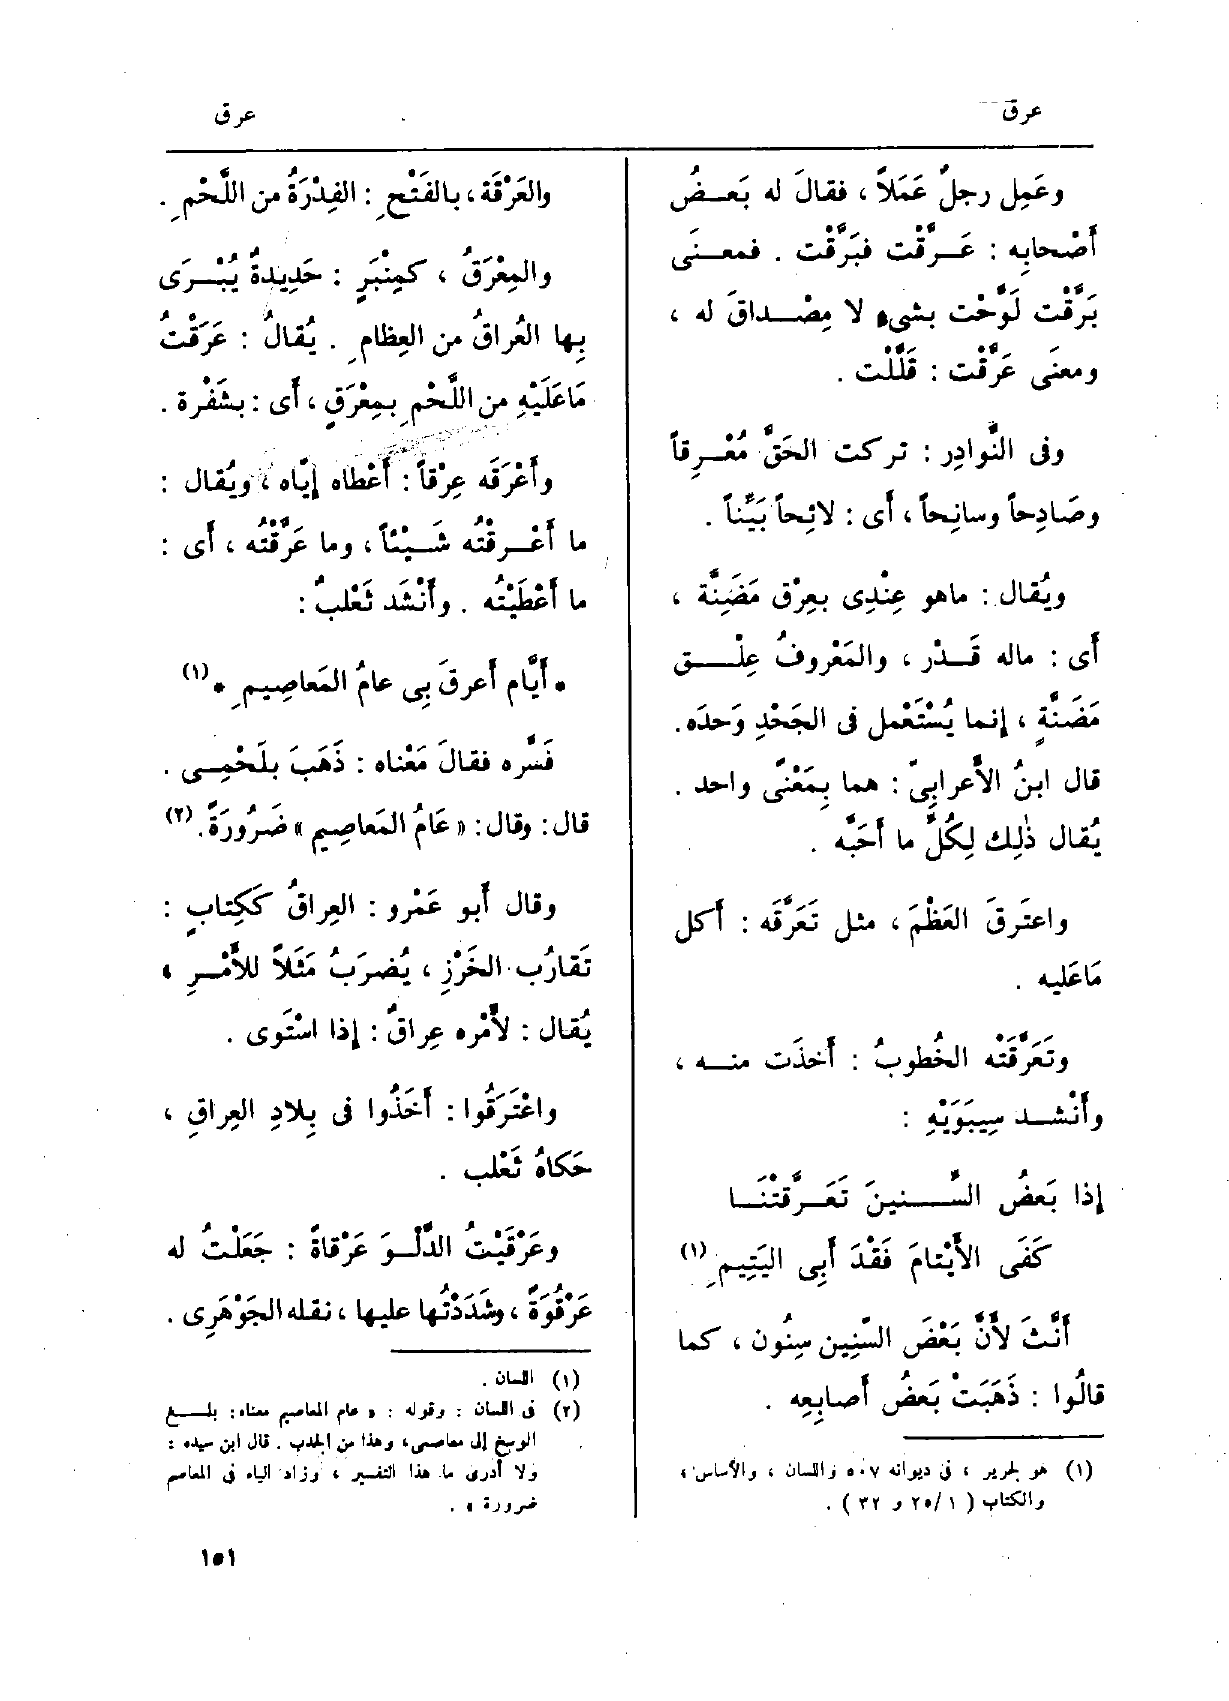 عرق
عرق
وعَمِل رجلٌ عَمَلاً ، فقالَ له بَعــضُ
أَصْحابِه : عَــرَّقْت فبَرَّقْت . فمعــنَى
بَرَّقْت لَوَّحْت بشىءٍ لا مِصْــداقَ له ،
ومعنَى عَرَّقْت : قَلَّلْت .
وفى النَّوادِر : تركت الحَقَّ مُعْــرِقاً
وصَادِحاً وسانِحاً ، أَى : لائِحاً بَيِّناً .
ويُقال : ماهو عِنْدِى بعِرْق مَضَنَّة ،
أَى : ماله قَــدْر ، والمَعْروفُ عِلْــق
مَضَنَّةٍ ، إنما يُسْتَعْمل فى الجَحْدِ وَحدَه.
قال ابنُ الأَعرابِىّ : هما بِمَعْنًى واحد .
يُقال ذٰلِك لِكُلِّ ما أَحَبَّه .
واعتَرقَ العَظْمَ ، مثل تَعَرَّقَه : أَكل
مَاعَليه .
وتَعَرَّقَتْه الخُطوبُ : أَخذَت منــه ،
وأَنْشــد سِيبَوَيْهِ :
إذا بَعضُ السِّــنينَ تَعَــرَّقَتْنَــا
كَفَى الأَيْتامَ فَقْدَ أَبِى اليَتِيمِ (١)
أَنَّثَ لأَنَّ بَعْضَ السِّنِين سِنُون ، كما
قالُوا : ذَهَبَتْ بَعضُ أَصابِعِه .
(١) هو لجرير ، فى ديوانه ٥٠٧ واللسان ، والأساس ،
والكتاب ( ١/ ٢٥ و ٣٢ ) .
والعَرْقَة ، بالفَتْحِ : الفِدْرَةُ من اللَّحْمِ .
والمِعْرَقُ ، كمِنْبَرٍ : حَدِيدةٌ يُبْــرَى
بِها العُراقُ من العِظامِ . يُقالُ : عَرَقْتُ
مَاعَلَيْهِ من اللَّحْمِ بمِعْرَقٍ ، أَى : بشَفْرة .
وأَعْرَقَه عِرْقاً : أَعْطاه إيّاه ، ويُقال :
ما أَعْــرقْتُه شَــيْئاً ، وما عَرَّقْتُه ، أَى :
ما أَعْطَيْتُه . وأَنْشَد ثَعْلبٌ :
• أَيَّام أَعرقَ بِى عامُ المَعاصِيمِ • (١)
فَسَّره فقالَ مَعْناه : ذَهَبَ بلَحْمِــى .
قال : وقال : « عَامُ المَعاصِيم » ضَرُورَةً . (٢)
وقال أَبو عَمْرو : العِراقُ ككِتابٍ :
تَقارُب الخَرْزِ ، يُضرَبُ مَثَلاً للأَمْــرِ ،
يُقال : لأَمْره عِراقٌ : إذا اسْتَوى .
واعْتَرَقُوا : أَخَذُوا فى بِلادِ العِراقِ ،
حَكاهُ ثَعْلب .
وعَرْقَيْتُ الدَّلْــوَ عَرْقاةً : جَعَلْتُ له
عَرْقُوَةً ، وشَدَدْتُها عليها ، نقله الجَوْهَرِى .
(١) اللسان .
(٢) فى اللسان : وقوله : « عام المعاصيم معناه : بلــغ
الوسخ إلى معاصمى ، وهذا من الجدب . قال ابن سيده :
ولا أدرى ما هذا التفسير ، وزاد الياء فى المعاصم
ضرورة » .
١٥١